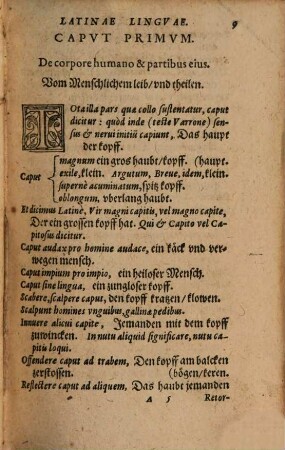 LATINAE LINGVAE. 9
CAPVT PRIMVM.
De corpore humano & partibus eius.
Vom Menschlichem leib/vnd theilen.
TOta illa pars quæ collo sustentatur, caput
dicitur: quòd inde (teste Varrone) sen-
sus & nerui initiũ capiunt, Das haupt
der kopff.
magnum ein gros haubt/kopff. (haupt.
Caput exile, klein. Argutum, Breue, idem, klein-
supernè acuminatum, spitz kopff.
oblongum, vberlang haubt.
Et dicimus Latinè, Vir magni capitis, vel magno capite,
Der ein grossen kopff hat. Qui & Capito vel Ca-
pitosus dicitur.
Caput audax pro homine audace, ein käck vnd ver-
wegen mensch.
Caput impium pro impio, ein heiloser Mensch.
Caput sine lingua, ein zungloser kopff.
Scabere, scalpere caput, den kopff kratzen/klowen.
Scalpunt homines vnguibus, gallinæ pedibus.
Innuere alicui capite, Jemanden mit dem kopff
zuwincken. In nutu aliquid significare, nutu ca-
pitis loqui.
Offendere caput ad trabem, Den kopff am balcken
zerstossen. (bögen/keren.
Reflectere caput ad aliquem, Das haubt jemanden
A 5 Retor-